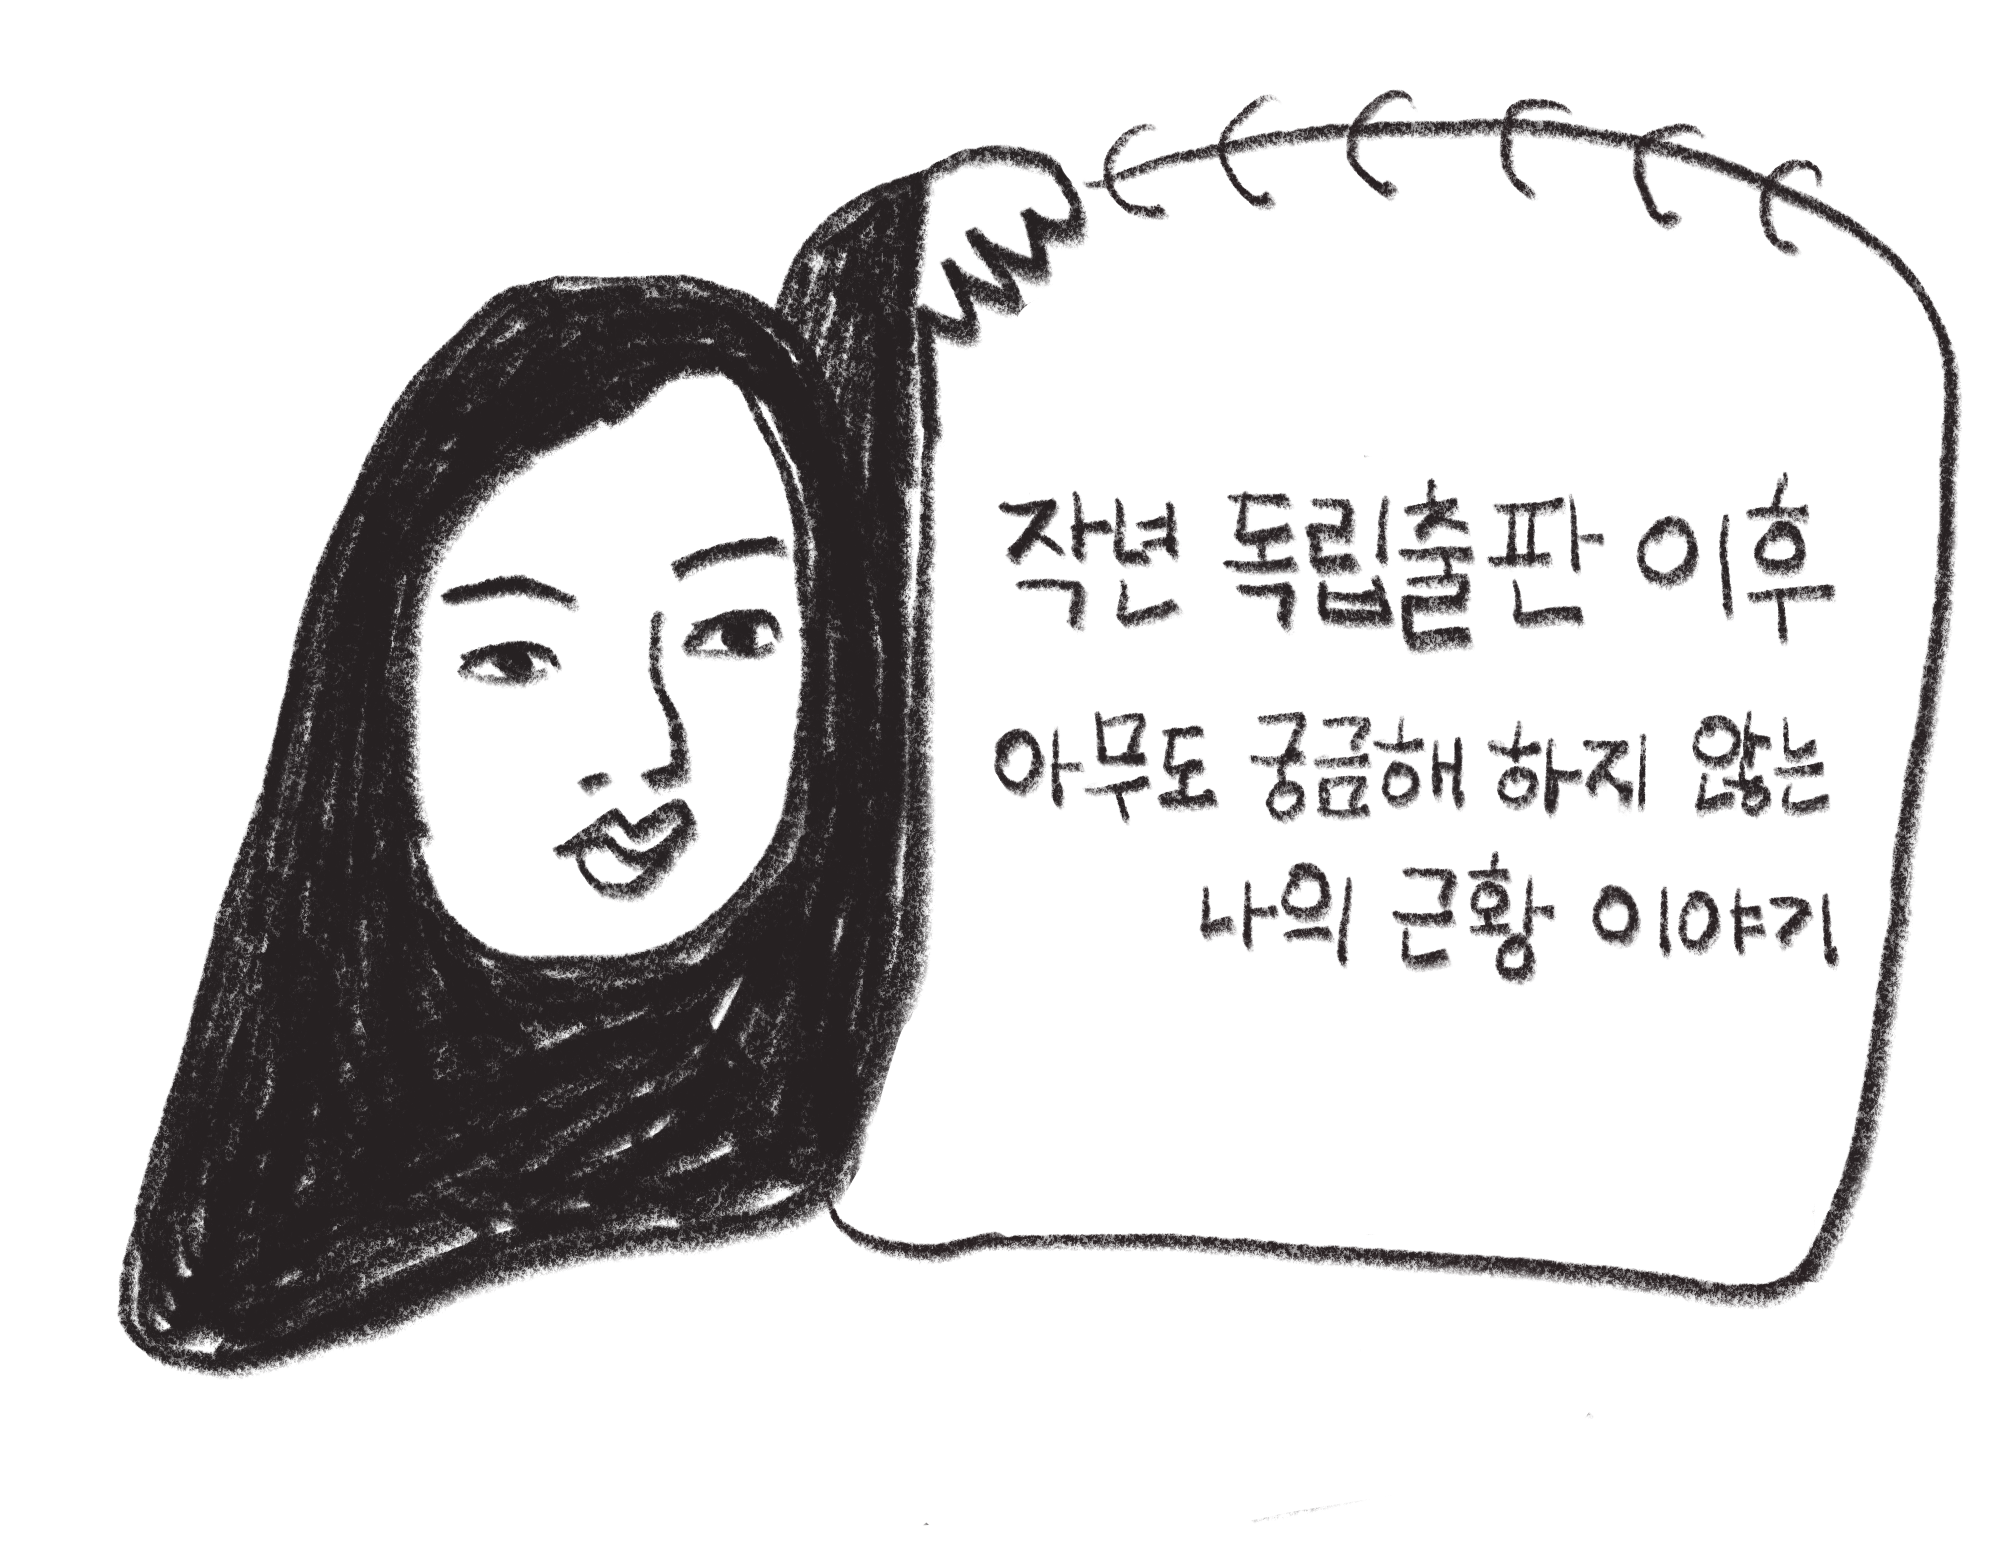 작년 독립출판 이후
아무도 궁금해 하지 않는
나의 근황 이야기